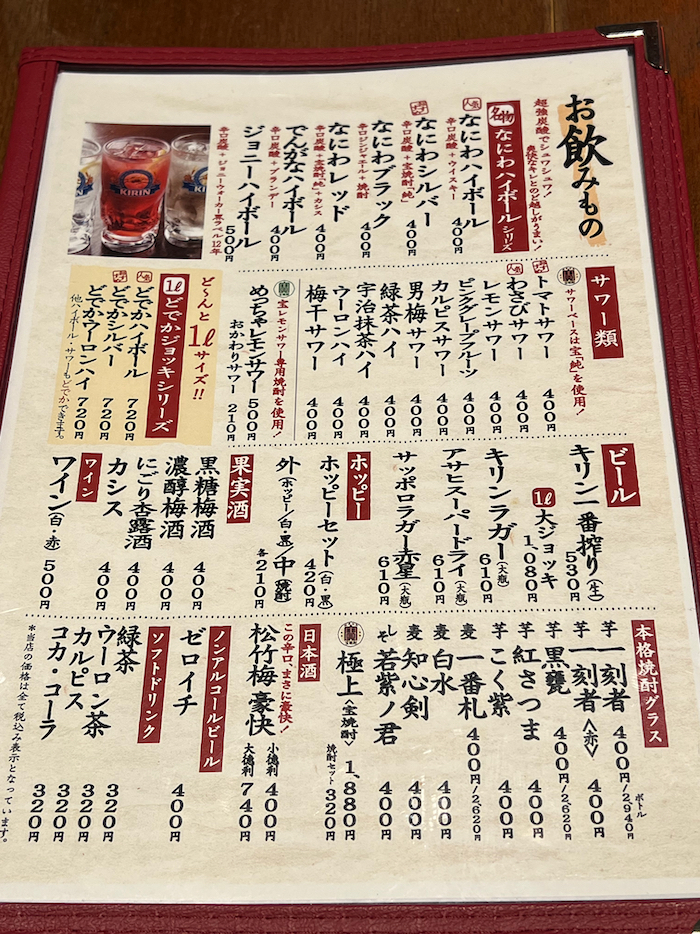 お飲みもの
超強炭酸でシュワシュワ!
爽快なキレとのど越しがうまい!
名物 なにわハイボールシリーズ
人気
なにわハイボール 400円
辛口炭酸+ウイスキー
なにわシルバー 400円
辛口炭酸+宝焼酎「純」
なにわブラック 400円
辛口ジンジャエール+焼酎
なにわレッド 400円
辛口炭酸+宝焼酎「純」+カシス
でんがなハイボール 400円
辛口炭酸+ブランデー
ジョニーハイボール 500円
辛口炭酸+ジョニーウォーカー黒ラベル12年
KIRIN
KIRIN
サワー類
サワーベースは宝「純」を使用!
トマトサワー 400円
人気
わさびサワー 400円
レモンサワー 400円
ピンクグレープフルーツ 400円
カルピスサワー 400円
男梅サワー 400円
緑茶ハイ 400円
宇治抹茶ハイ 400円
ウーロンハイ 400円
梅干サワー 400円
宝レモンサワー専用焼酎を使用!
めっちゃレモンサワー 500円
おかわりサワー 210円
ど〜んと1ℓサイズ!!
1ℓ どでかジョッキシリーズ
人気
どでかハイボール 720円
どでかシルバー 720円
どでかウーロンハイ 720円
他ハイボール・サワーもどでかできます。
ビール
キリン一番搾り(生) 530円
1ℓ 大ジョッキ 1,080円
キリンラガー(大瓶) 610円
アサヒスーパードライ(大瓶) 610円
サッポロラガー赤星(大瓶) 610円
ホッピー
ホッピーセット(白・黒) 420円
外(ホッピー/白・黒)/中(焼酎) 各210円
果実酒
黒糖梅酒 400円
濃醇梅酒 400円
にごり杏露酒 400円
カシス 400円
ワイン
ワイン(白・赤) 500円
本格焼酎グラス
ボトル
芋 一刻者 400円/2,940円
芋 一刻者<赤> 400円
芋 黒甕 400円/2,620円
芋 紅さつま 400円
芋 こく紫 400円
麦 一番札 400円/2,620円
麦 白水 400円
麦 知心剣 400円
しそ 若紫ノ君 400円
極上<宝焼酎> 1,880円
焼酎セット 320円
日本酒
この辛口、まさに豪快!
松竹梅 豪快
小徳利 400円
大徳利 740円
ノンアルコールビール
ゼロイチ 400円
ソフトドリンク
緑茶 320円
ウーロン茶 320円
カルピス 320円
コカ・コーラ 320円
*当店の価格は全て税込み表示となっています。